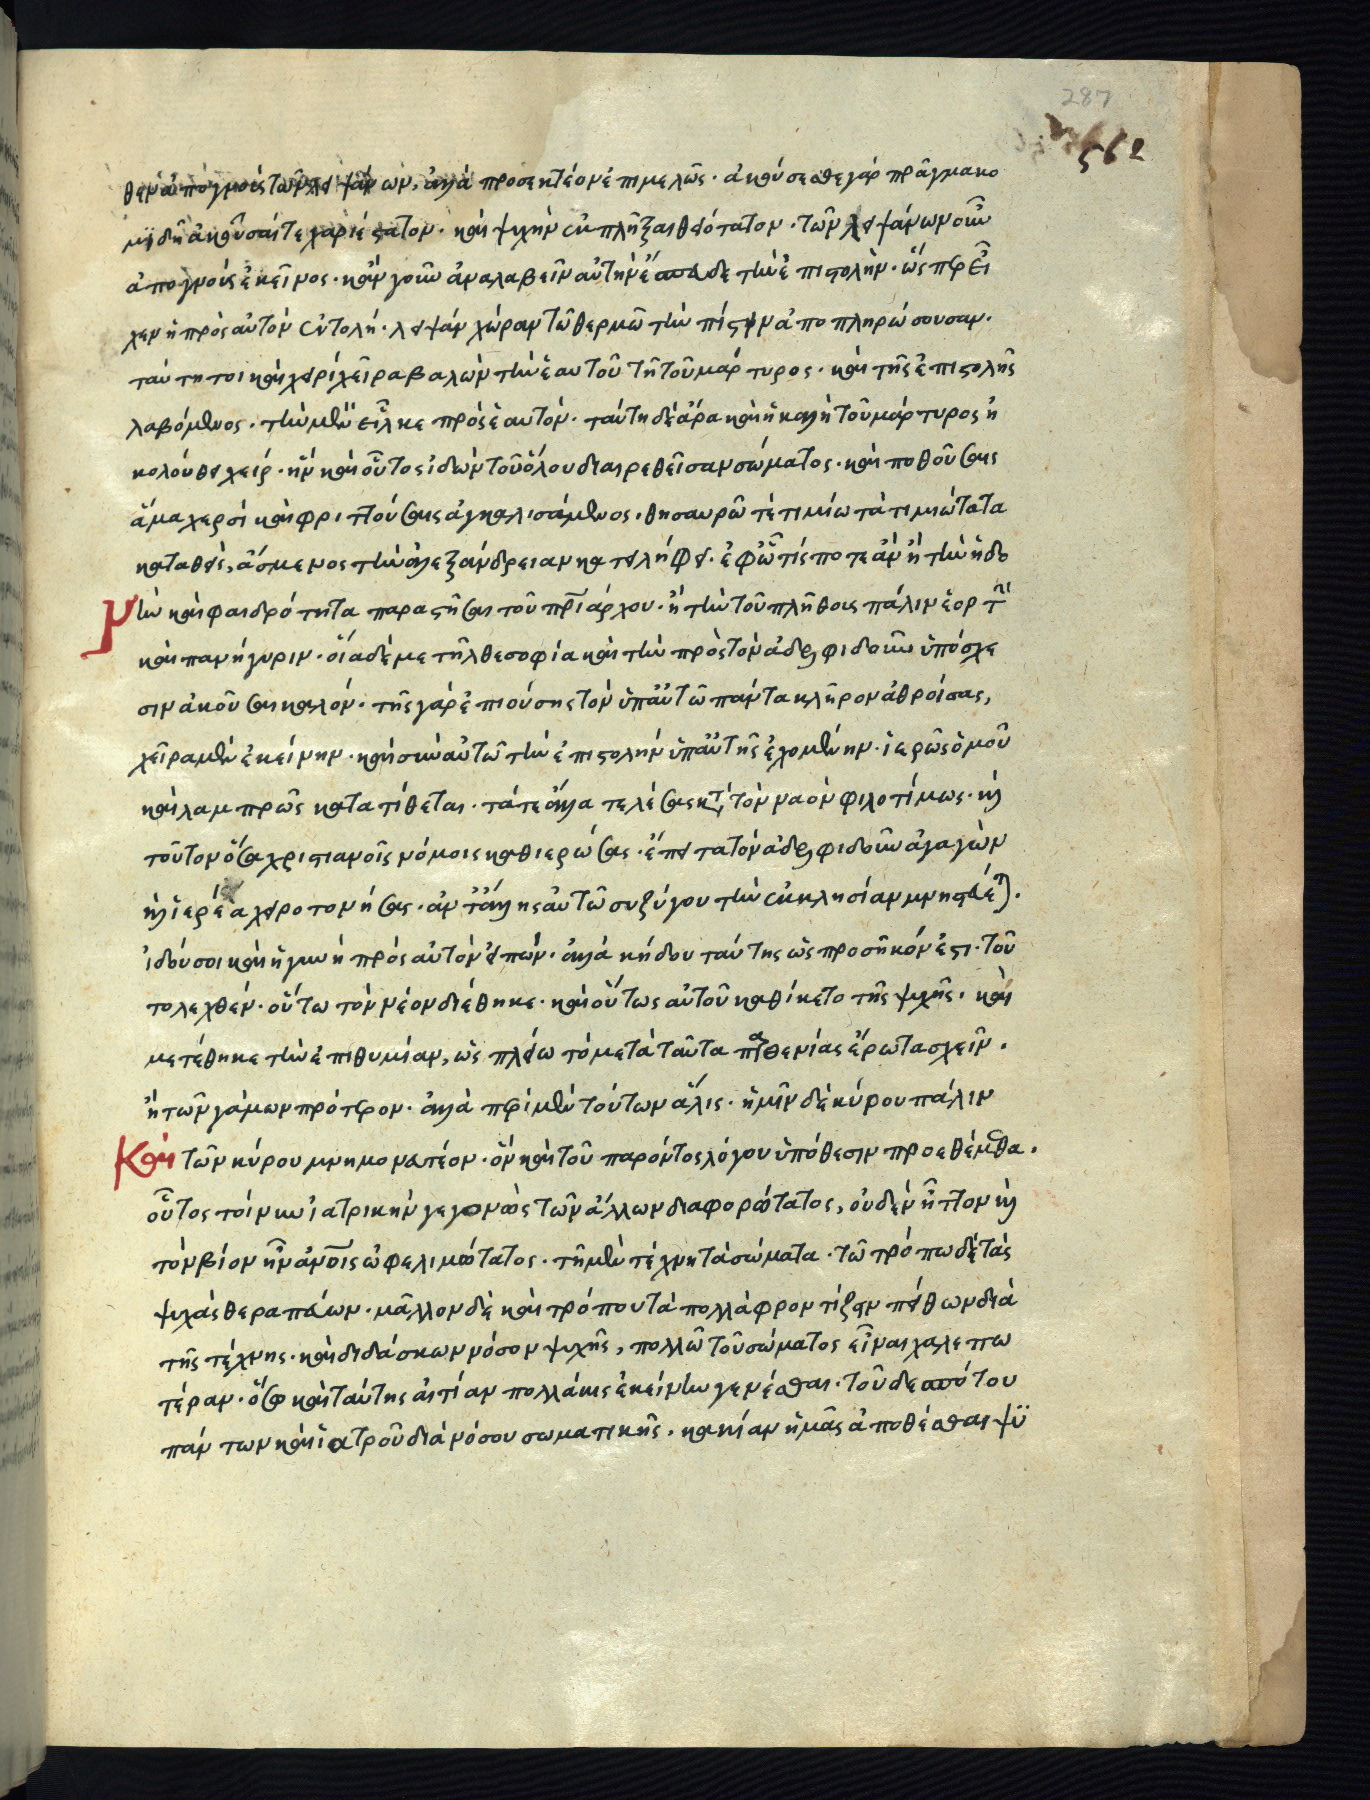 287
562
θεν ἀπογνοὺς τῶν λειψάνων, ἀλλὰ προσεκτέον ἐπιμελῶς· ἀκούσεσθε γὰρ πρᾶγμα κο
μϊδῆ ἀκοῦσαί τε χαριέστατον· καὶ ψυχὴν ἐκπλῆξαι θειότατον· τῶν λειψάνων οὖν
ἀπογνοὺς ἐκεῖνος· κἂν γοῦν ἀναλαβεῖν αὐτὴν ἔσπευδε τὴν ἐπιστολὴν· ὥσπερ εἶ
χεν ἡ πρὸς αὐτὸν ἐντολή· λειψάν χώραν τῶ θερμῶ τὴν πίστιν ἀποπληρώσουσαν.
ταύτη τοι καὶ χειρὶ χεῖρα βαλὼν τὴν ἑαυτοῦ τῆ τοῦ μάρτυρος· καὶ τῆς ἐπιστολῆς
λαβόμενος· τὴν μὲν εἷλκε πρὸς ἑαυτόν· ταύτη δὲ ἄρα καὶ ἡ καλὴ τοῦ μάρτυρος ἠ
κολούθει χείρ· ἣν καὶ οὗτος ἰδὼν τοῦ ὅλου διαιρεθεῖσαν σώματος· καὶ ποθούσαις
ἅμα χερσὶ καὶ φριττούσαις ἀγκαλισάμενος· θησαυρῶ τὲ τιμίω τὰ τιμιώτατα
καταθεὶς, ἄσμενος τὴν ἀλεξάνδρειαν κατειλήφει· ἐφ' ὧ τίς ποτε ἂν ἢ τὴν ἡδο
νὴν καὶ φαιδρότητα παραστῆσαι τοῦ πριάρχου· ἢ τὴν τοῦ πλήθους πάλιν ἑορτὴν
καὶ πανήγυριν· οἵα δὲ μετῆλθε σοφία καὶ τὴν πρὸς τὸν ἀδελφιδοῦν ὑπόσχε
σιν ἀκοῦσαι καλόν· τῆς γὰρ ἐπιούσης τὸν ὑπ' αὐτῶ πάντα κλῆρον ἀθροίσας,
χεῖρα μὲν ἐκείνην· καὶ σὺν αὐτῶ τὴν ἐπιστολὴν ὑπ' αὐτῆς ἐχομένην· ἱερῶς ὁμοῦ
καὶ λαμπρῶς κατατίθεται· τά τε ἄλλα τελέσας κατὰ τὸν ναὸν φιλοτίμως· καὶ
τοῦτον ὅσα χριστιανοῖς νόμοις καθιερώσας· ἔπειτα τὸν ἀδελφιδοῦν ἀγαγὼν
καὶ ἱερέα χειροτονήσας· ἀντ' ἄλλης αὐτῶ συζύγου τὴν ἐκκλησίαν μνηστεύεται.
ἰδού σοι καὶ ἡ γυνὴ πρὸς αὐτὸν εἰπών· ἀλλὰ κήδου ταύτης ὡς προσῆκόν ἐστι· τοῦ
το λεχθὲν· οὕτω τὸν νέον διέθηκε· καὶ οὕτως αὐτοῦ καθίκετο τῆς ψυχῆς· καὶ
μετέθηκε τὴν ἐπιθυμίαν, ὡς πλείω τὸ μετὰ ταῦτα παρθενίας ἔρωτα σχεῖν.
ἢ τῶν γάμων πρότερον· ἀλλὰ περὶ μὲν τούτων ἅλις· ἡμῖν δὲ κύρου πάλιν
Καὶ τῶν κύρου μνημονευτέον· ὃν καὶ τοῦ παρόντος λόγου ὑπόθεσιν προεθέμεθα.
οὗτος τοίνυν ἰατρικὴν γεγονὼς τῶν ἄλλων διαφορώτατος, οὐδὲν ἧττον καὶ
τὸν βίον ἦν ἀνοις ὠφελιμώτατος· τῆ μὲν τέχνη τὰ σώματα· τῶ τρόπω δὲ τὰς
ψυχὰς θεραπεύων· μᾶλλον δὲ καὶ τρόπου τὰ πολλὰ φροντίζειν πείθων διὰ
τῆς τέχνης· καὶ διδάσκων νόσον ψυχῆς, πολλῶ τοῦ σώματος εἶναι χαλεπω
τέραν· ὅσω καὶ ταύτης αἰτίαν πολλάκις ἐκείνην γενέσθαι· τοῦ δεσπότου
πάντων καὶ ἰατροῦ διὰ νόσου σωματικῆς· κακίαν ἡμᾶς ἀποθέσθαι ψϋ